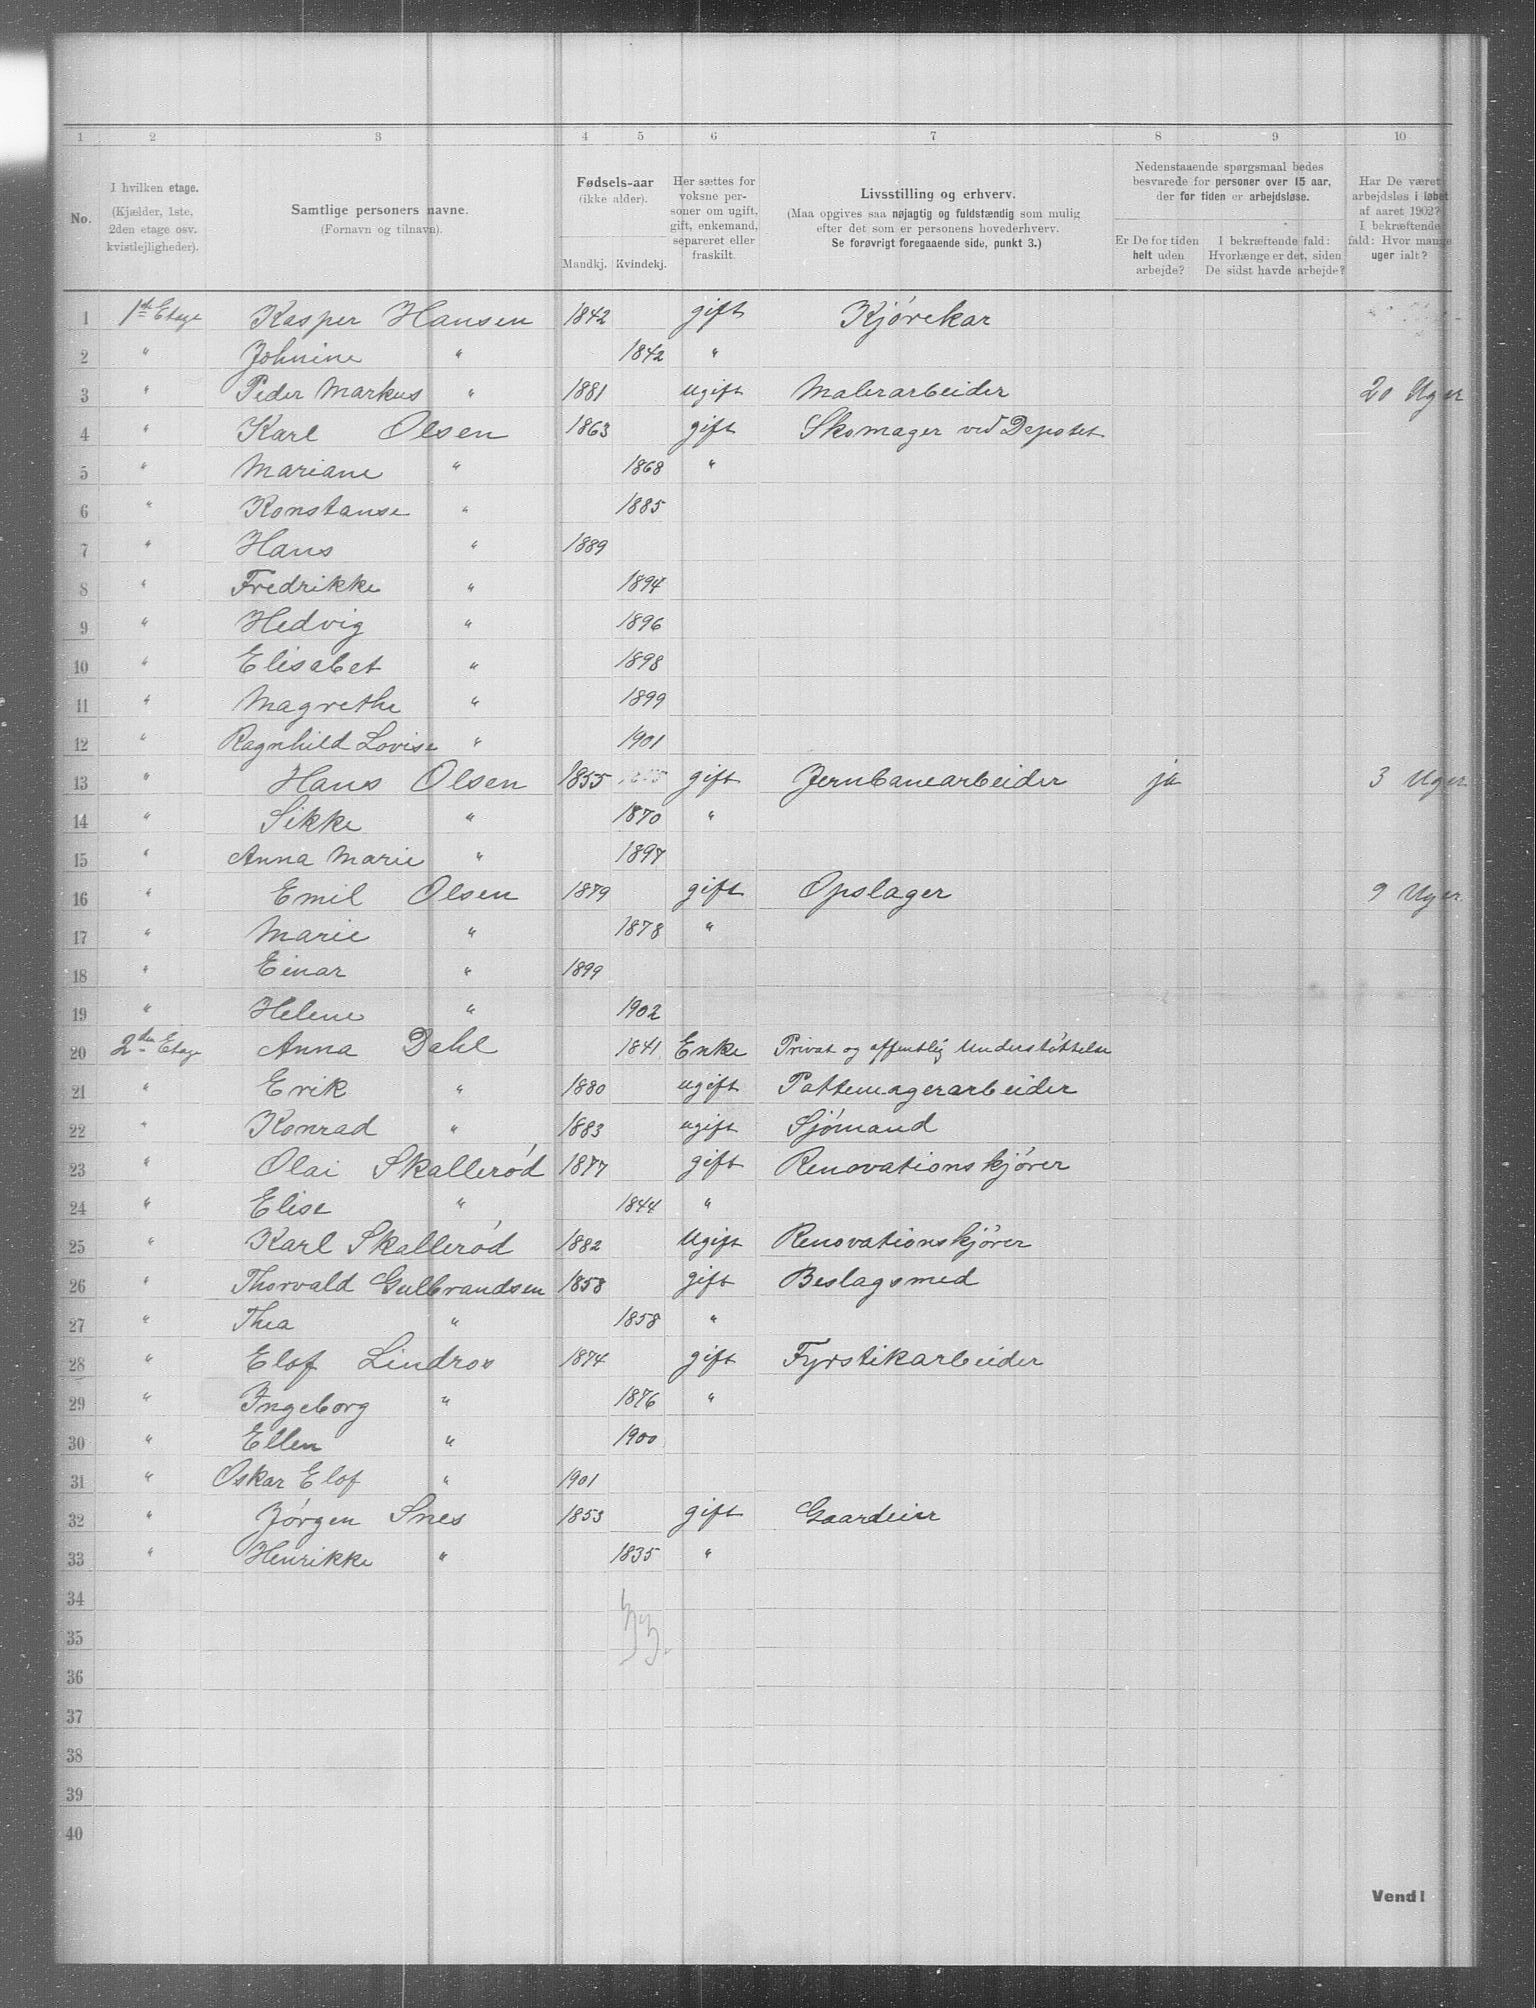 1 2 3 4 5 6 7 8 9 10
No.
I hvilken etage.
(Kjælder, 1ste,
2den etage osv.
kvistlejligheder).
Samtlige personers navne.
(Fornavn og tilnavn).
Fødsels-aar
(ikke alder).
Mandkj. Kvindekj.
Her sættes for
voksne per-
soner om ugift,
gift, enkemand,
separeret eller
fraskilt.
Livsstilling og erhverv.
(Maa opgives saa nøjagtig og fuldstændig som mulig
efter det som er personens hovederhverv.
Se forøvrigt foregaaende side, punkt 3.)
Nedenstaaende spørgsmaal bedes
besvarede for personer over 15 aar,
der for tiden er arbejdsløse.
Er De for tiden
helt uden
arbejde?
I bekræftende fald:
Hvorlænge er det, siden
De sidst havde arbejde?
Har De været
arbejdsløs i løbet
af aaret 1902?
I bekræftende
fald: Hvor mange
uger ialt?
1 1ste Etage Kasper Hansen 1842 gift Kjørekar
2 " Johnine " 1842 "
3 " Peder Markus " 1881 ugift Malerarbeider 20 Uger
4 " Karl Olsen 1863 gift Skomager ved Depotet
5 " Mariane " 1868 "
6 " Konstanse " 1885
7 " Hans " 1889
8 " Fredrikke " 1894
9 " Hedvig " 1896
10 " Elisabet " 1898
11 " Magrethe " 1899
12 " Ragnhild Lovise " 1901
13 " Hans Olsen 1855 gift Jernbanearbeider ja 3 Uger
14 " Sikke " 1870 "
15 " Anna Marie " 1897
16 " Emil Olsen 1879 gift Opslager 9 Uger
17 " Marie " 1878 "
18 " Einar " 1899
19 " Helene " 1902
20 2den Etage Anna Dahl 1841 Enke Privat og offentlig Understøttelse
21 " Erik " 1880 ugift Pottemagerarbeider
22 " Konrad " 1883 ugift Sjømand
23 " Olai Skallerød 1877 gift Renovationskjører
24 " Elise " 1844 "
25 " Karl Skallerød 1882 Ugift Renovationskjører
26 " Thorvald Gulbrandsen 1858 gift Beslagsmed
27 " Thea " 1858 "
28 " Elof Lindros 1874 gift Fyrstikarbeider
29 " Ingeborg " 1876 "
30 " Ellen " 1900
31 " Oskar Elof " 1901
32 " Jørgen Snes 1853 gift Gaardeier
33 " Henrikke " 1835 "
34
35
36
37
38
39
40
Vend!